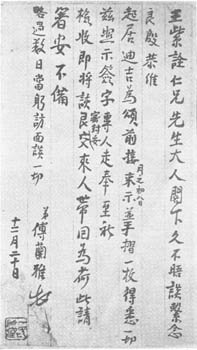 王紫詮仁兄先生大人閣下久不晤談繫念
良殷恭維
起居迪吉為頌前接月之初八日來示並手摺一枚得悉一切
茲照示簽字密封妥專人走奉至祈
檢收即將該艮交來人帶回為荷此請
箸安不備
略過數日當躬訪面談一切
弟傅蘭雅
十二月二十日